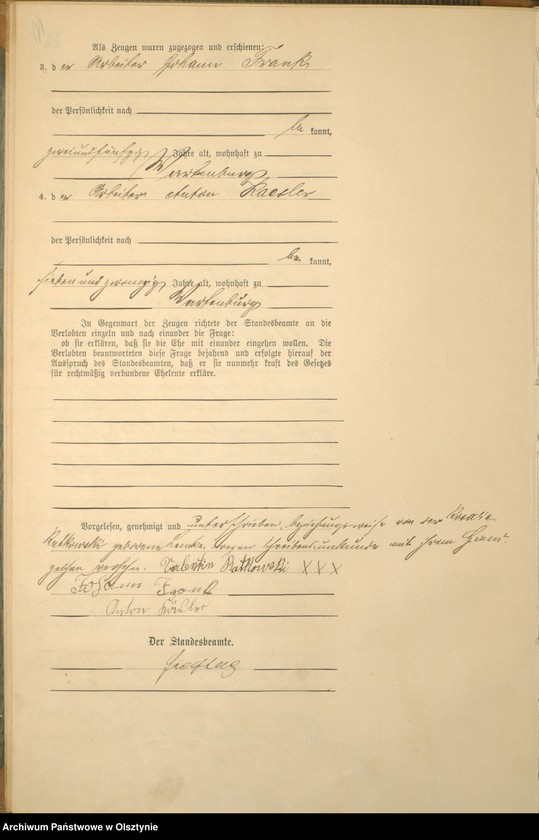 Als Zeugen waren zugezogen und erschienen:
3. der Arbeiter Johann Frank
der Persönlichkeit nach
bekannt,
zweiundfünfzig Jahre alt, wohnhaft zu
Wartenburg
4. der Arbeiter Anton Kaesler
der Persönlichkeit nach
bekannt,
siebenundzwanzig Jahre alt, wohnhaft zu
Wartenburg
In Gegenwart der Zeugen richtete der Standesbeamte an die
Verlobten einzeln und nach einander die Frage:
ob sie erklären, daß sie die Ehe mit einander eingehen wollen. Die
Verlobten beantworteten diese Frage bejahend und erfolgte hierauf der
Ausspruch des Standesbeamten, daß er sie nunmehr kraft des Gesetzes
für rechtmäßig verbundene Eheleute erkläre.
Vorgelesen, genehmigt und unterschrieben beziehungsweise von der
Ratkowski geborene wegen Schreibensunkunde mit ihrem Hand-
zeichen versehen. Ratkowski XXX
Johann Frank
Anton
Der Standesbeamte.
Archiwum Państwowe w Olsztynie